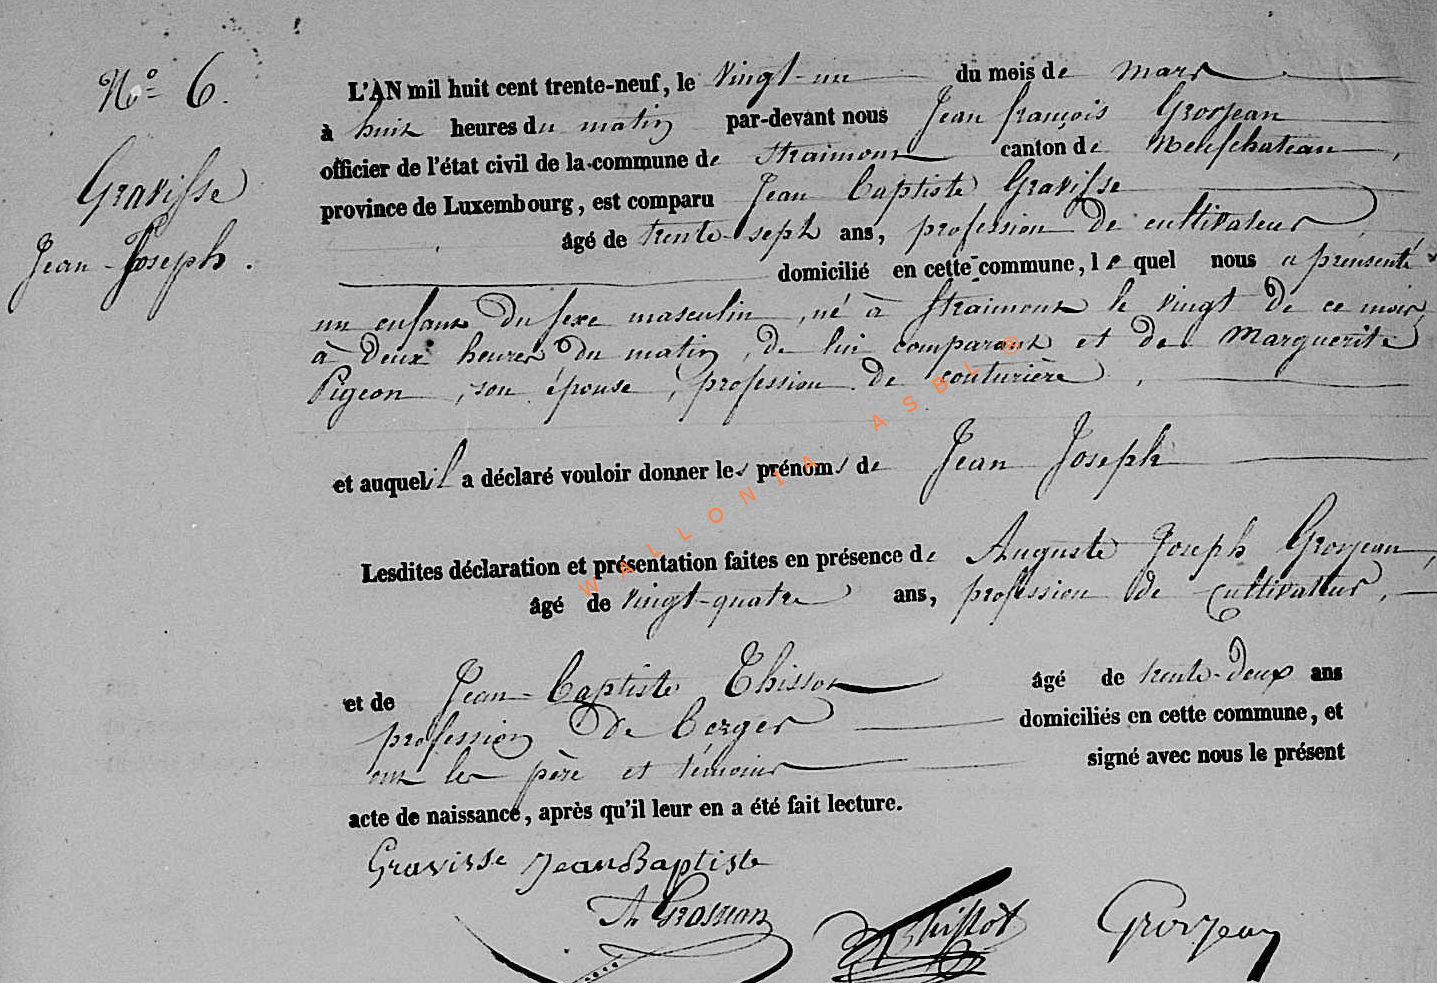 N° 6.
Gravisse
Jean-Joseph.
L'AN mil huit cent trente-neuf, le vingt-un du mois de mars
à huit heures du matin par-devant nous Jean françois Grosjean
officier de l'état civil de la commune de Straimont canton de Neufchateau,
province de Luxembourg, est comparu Jean Baptiste Gravisse
âgé de trente-sept ans, profession de cultivateur,
domicilié en cette commune, lequel nous a prensenté
un enfant du sexe masculin, né à Straimont le vingt de ce mois,
à deux heures du matin, de lui comparant et de Marguerite
Pigeon, son épouse, profession de couturière,
et auquel il a déclaré vouloir donner les prénoms de Jean Joseph
Lesdites déclaration et présentation faites en présence de Auguste Joseph Grosjean,
âgé de vingt-quatre ans, profession de Cultivateur,
et de Jean-Baptiste Thissot âgé de trente-deux ans
profession de Berger domiciliés en cette commune, et
ont les père et témoins signé avec nous le présent
acte de naissance, après qu'il leur en a été fait lecture.
Gravisse Jean Baptiste
Grosjean
Thissot
Grosjean
WALLONIA ASBL ©